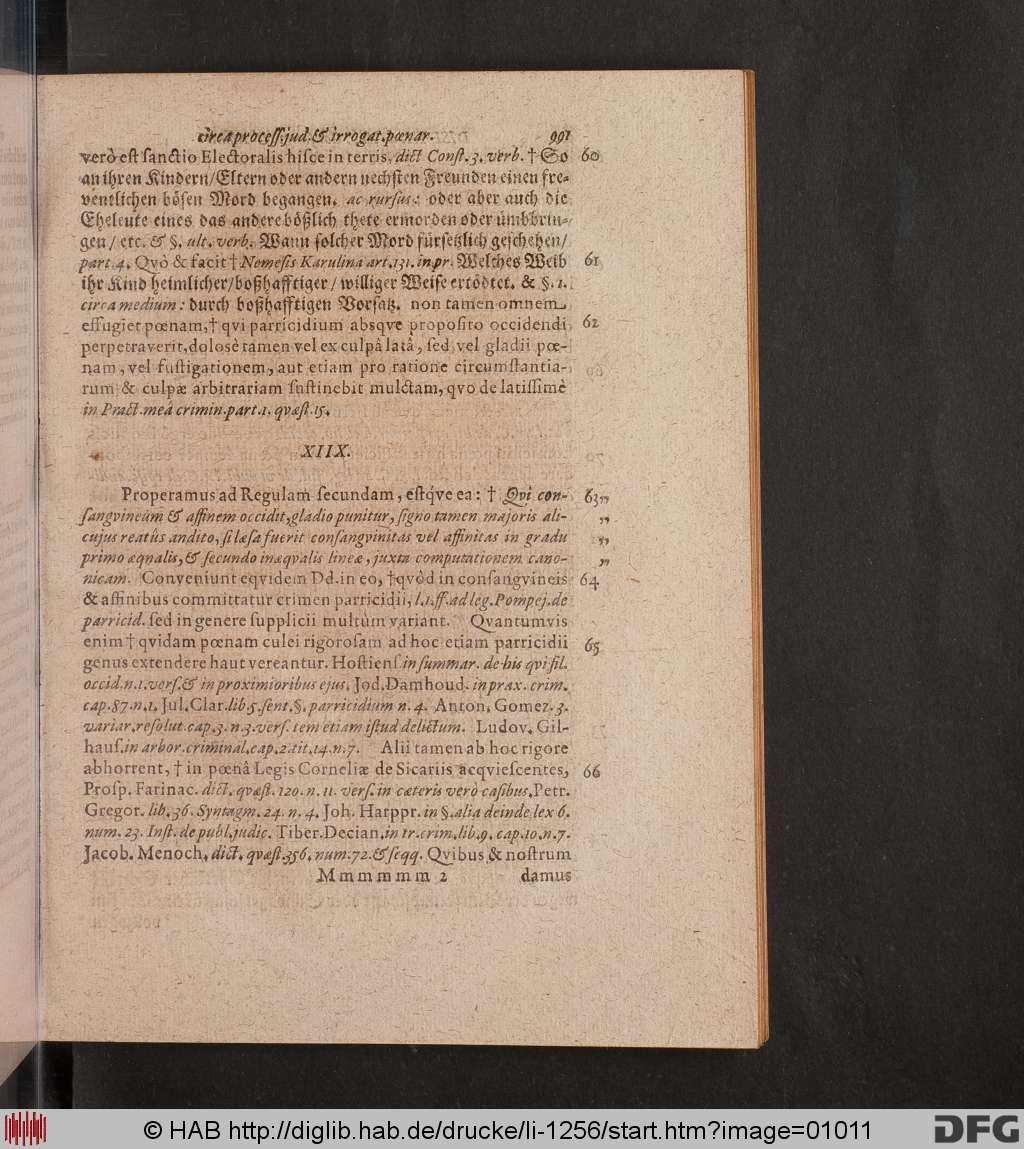 circa process. jud. & irrogat. pœnar. 991
verò est sanctio Electoralis hisce in terris, dict Const. 3. verb. † So 60
an ihren Kindern/Eltern oder andern nechsten Freunden einen fre-
ventlichen bösen Mord begangen. ac rursus: oder aber auch die
Eheleute eines das andere bößlich thete ermorden oder umbbrin-
gen/ etc. & §. ult. verb. Wann solcher Mord fürsetzlich geschehen/
part. 4. Qvò & facit † Nemesis Karulina art. 131. in pr. Welches Weib 61
ihr Kind heimlicher/boßhafftiger/ williger Weise ertödtet. & §. 1.
circa medium: durch boßhafftigen Vorsatz. non tamen omnem
effugiet pœnam, † qvi parricidium absqve proposito occidendi 62
perpetraverit, dolosè tamen vel ex culpâ latâ, sed vel gladii pœ-
nam, vel fustigationem, aut etiam pro ratione circumstantia-
rum & culpæ arbitrariam sustinebit mulctam, qvo de latissimè
in Pract. meâ crimin. part. 1. qvæst. 15.
XIIX.
Properamus ad Regulam secundam, estq́ve ea: † Qvi con- 63 „
sangvineum & affinem occidit, gladio punitur, signo tamen majoris ali- „
cujus reatûs addito, si læsa fuerit consangvinitas vel affinitas in gradu „
primo æqualis, & secundo inæqvalis lineæ, juxta computationem cano- „
nicam. Conveniunt eqvidem Dd. in eo, † qvòd in consangvineis 64
& affinibus committatur crimen parricidii, l. 1. ff. ad leg. Pompej. de
parricid. sed in genere supplicii multùm variant. Qvantumvis
enim † qvidam pœnam culei rigorosam ad hoc etiam parricidii 65
genus extendere haut vereantur. Hostiens. in summar. de his qvi fil.
occid. n. 1. vers. & in proximioribus ejus. Jod. Damhoud. in prax. crim.
cap. 87. n. 1. Jul. Clar. lib. 5. sent. §. parricidium n. 4. Anton. Gomez. 3.
variar. resolut. cap. 3. n. 3. vers. item etiam istud delictum. Ludov. Gil-
haus. in arbor. criminal. cap. 2. tit. 14. n. 7. Alii tamen ab hoc rigore
abhorrent, † in pœnâ Legis Corneliæ de Sicariis acqviescentes, 66
Prosp. Farinac. dict. qvæst. 120. n. 11. vers. in cæteris verò casibus. Petr.
Gregor. lib. 36. Syntagm. 24. n. 4. Joh. Harppr. in §. alia deinde lex 6.
num. 23. Inst. de publ. judic. Tiber. Decian. in tr. crim. lib. 9. cap. 10. n. 7.
Jacob. Menoch. dict. qvæst. 356. num. 72. & seqq. Qvibus & nostrum
Mmmmmm 2 damus
© HAB http://diglib.hab.de/drucke/li-1256/start.htm?image=01011
DFG